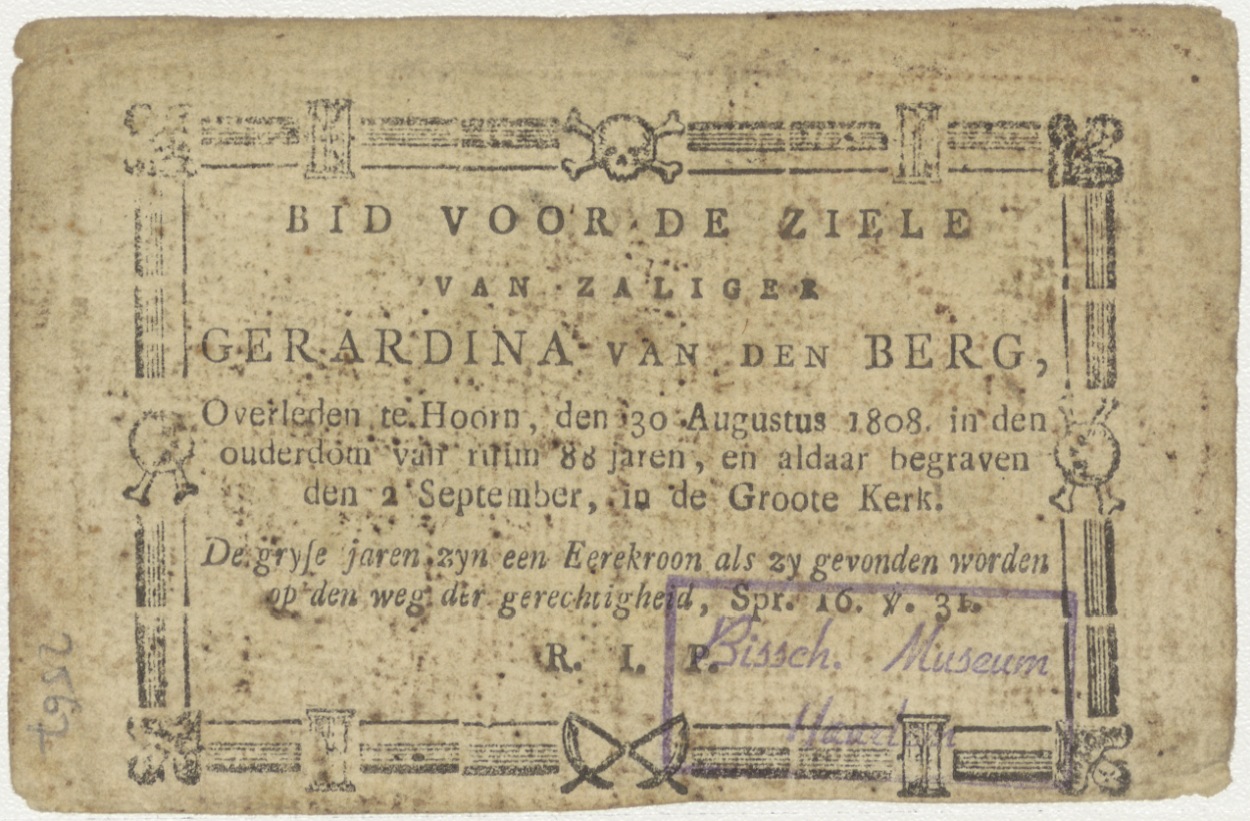 BID VOOR DE ZIELE
VAN ZALIGER
GERARDINA VAN DEN BERG,
Overleden te Hoorn, den 30 Augustus 1808. in den
ouderdom van ruim 88 jaren, en aldaar begraven
den 2 September, in de Groote Kerk.
De gryſe jaren zyn een Eerekroon als zy gevonden worden
op den weg der gerechtigheid, Spr. 16. ℣. 31.
R. I. P.
Bissch. Museum
Haarlem
2567